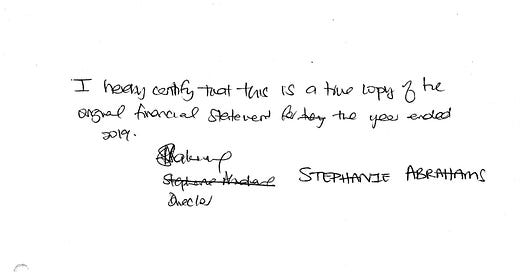 I hereby certify that this is a true copy of the
original financial statement for the year ended
2019.
STEPHANIE ABRAHAMS
Director